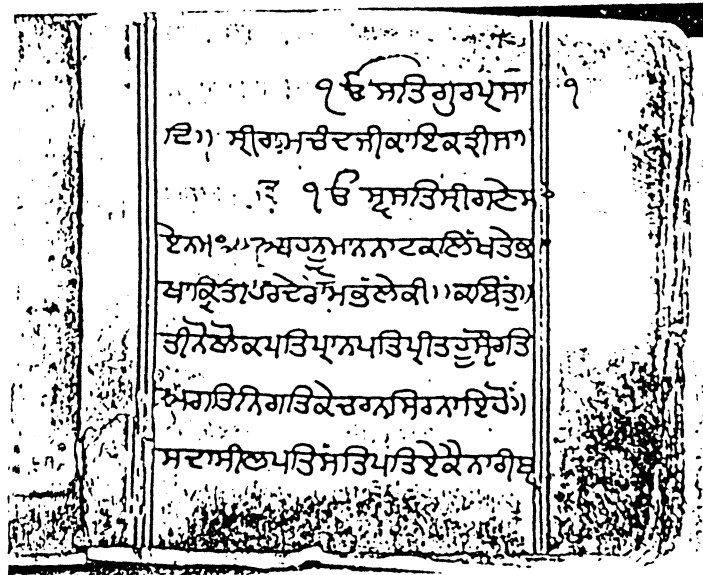 ੧ੴ ਸਤਿਗੁਰਪ੍ਰਸਾ ੧
ਦਿ॥ ਸ੍ਰੀਰਾਮਚੰਦਜੀਕਾ
ੴ ਸ੍ਵਸਤਿਸ੍ਰੀਗਣੇਸ
ਏਨਮ ਅਥਹਨੂਮਾਨਨਾਟਕਲਿਖਤੇਭ
ਖਾਕ੍ਰਿਤ॥ਹਰਦੇਰਾਮਭਲੇਕੀ॥ਕਬਿਤੁ॥
ਤੀਨੋਲੋਕਪਤਿਪ੍ਰਾਨਪਤਿਪ੍ਰੀਤਹੂ
ਅਗਤਿਨਿਗਤਿਕੇਚਰਨਸਿਰਨਾਇਹੋਂ॥
ਸਦਾਸੀਲਪਤਿਸਤਿਪਤਿਏਕੈਨਾਰੀਬ੍ਰ